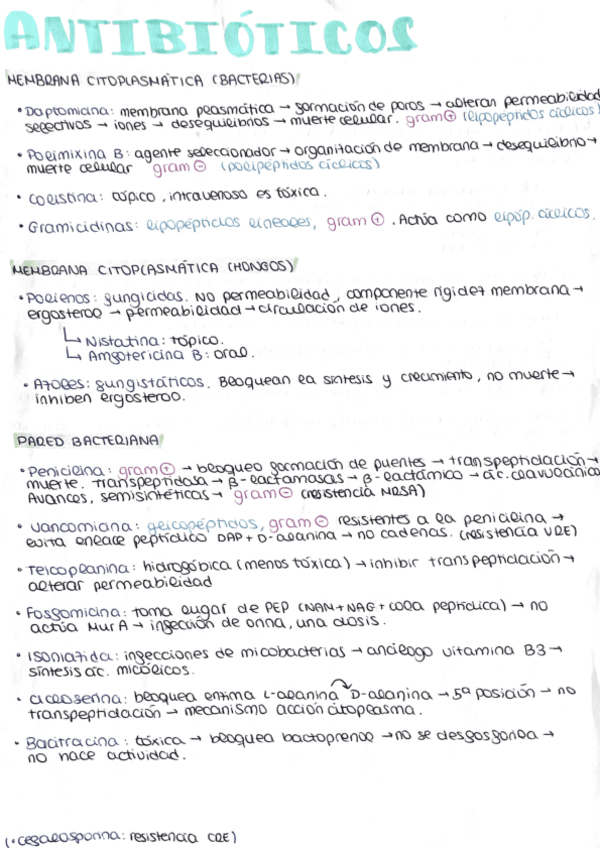 ANTIBIÓTICOS
MEMBRANA CITOPLASMÁTICA (BACTERIAS)
• Daptomicina: membrana plasmática → formación de poros → alteran permeabilidad
selectivos → iones → desequilibrios → muerte celular. gram ⊕ (lipopéptidos cíclicos)
• Polimixina B: agente seleccionador → organización de membrana → desequilibrio →
muerte celular gram ⊖ (polipéptidos cíclicos)
• Colistina: tópico, intravenoso es tóxica.
• Gramicidinas: lipopéptidos lineales, gram ⊕. Actúa como lipóp. cíclicos.
MEMBRANA CITOPLASMÁTICA (HONGOS)
• Polienos: fungicidas. No permeabilidad, componente rigidez membrana →
ergosterol → permeabilidad → circulación de iones.
↳ Nistatina: tópico.
↳ Amfotericina B: oral.
• Azoles: fungistáticos. Bloquean la síntesis y crecimiento, no muerte →
inhiben ergosterol.
PARED BACTERIANA
• Penicilina: gram ⊕ → bloqueo formación de puentes → transpeptidación →
muerte. Transpeptidasa → β-lactamasas → β-lactámico → ác. clavulánico
Avances, semisintéticas → gram ⊖ (resistencia MRSA)
• Vancomiana: glicopéptidos, gram ⊖ resistentes a la penicilina →
evita enlace peptídico DAP + D-alanina → no cadenas. (resistencia VRE)
• Teicoplanina: hidrofóbica (menos tóxica) → inhibir transpeptidación →
alterar permeabilidad
• Fosfomicina: toma lugar de PEP (NAM + NAG + cola peptídica) → no
actúa Mur A → infección de orina, una dosis.
• Isoniazida: infecciones de micobacterias → análogo vitamina B3 →
síntesis ác. micólicos.
• Cicloserina: bloquea enzima L-alanina ↷ D-alanina → 5ª posición → no
transpeptidación → mecanismo acción citoplasma.
• Bacitracina: tóxica → bloquea bactoprenol → no se desfosforila →
no hace actividad.
(• Cefalosporina: resistencia CRE)